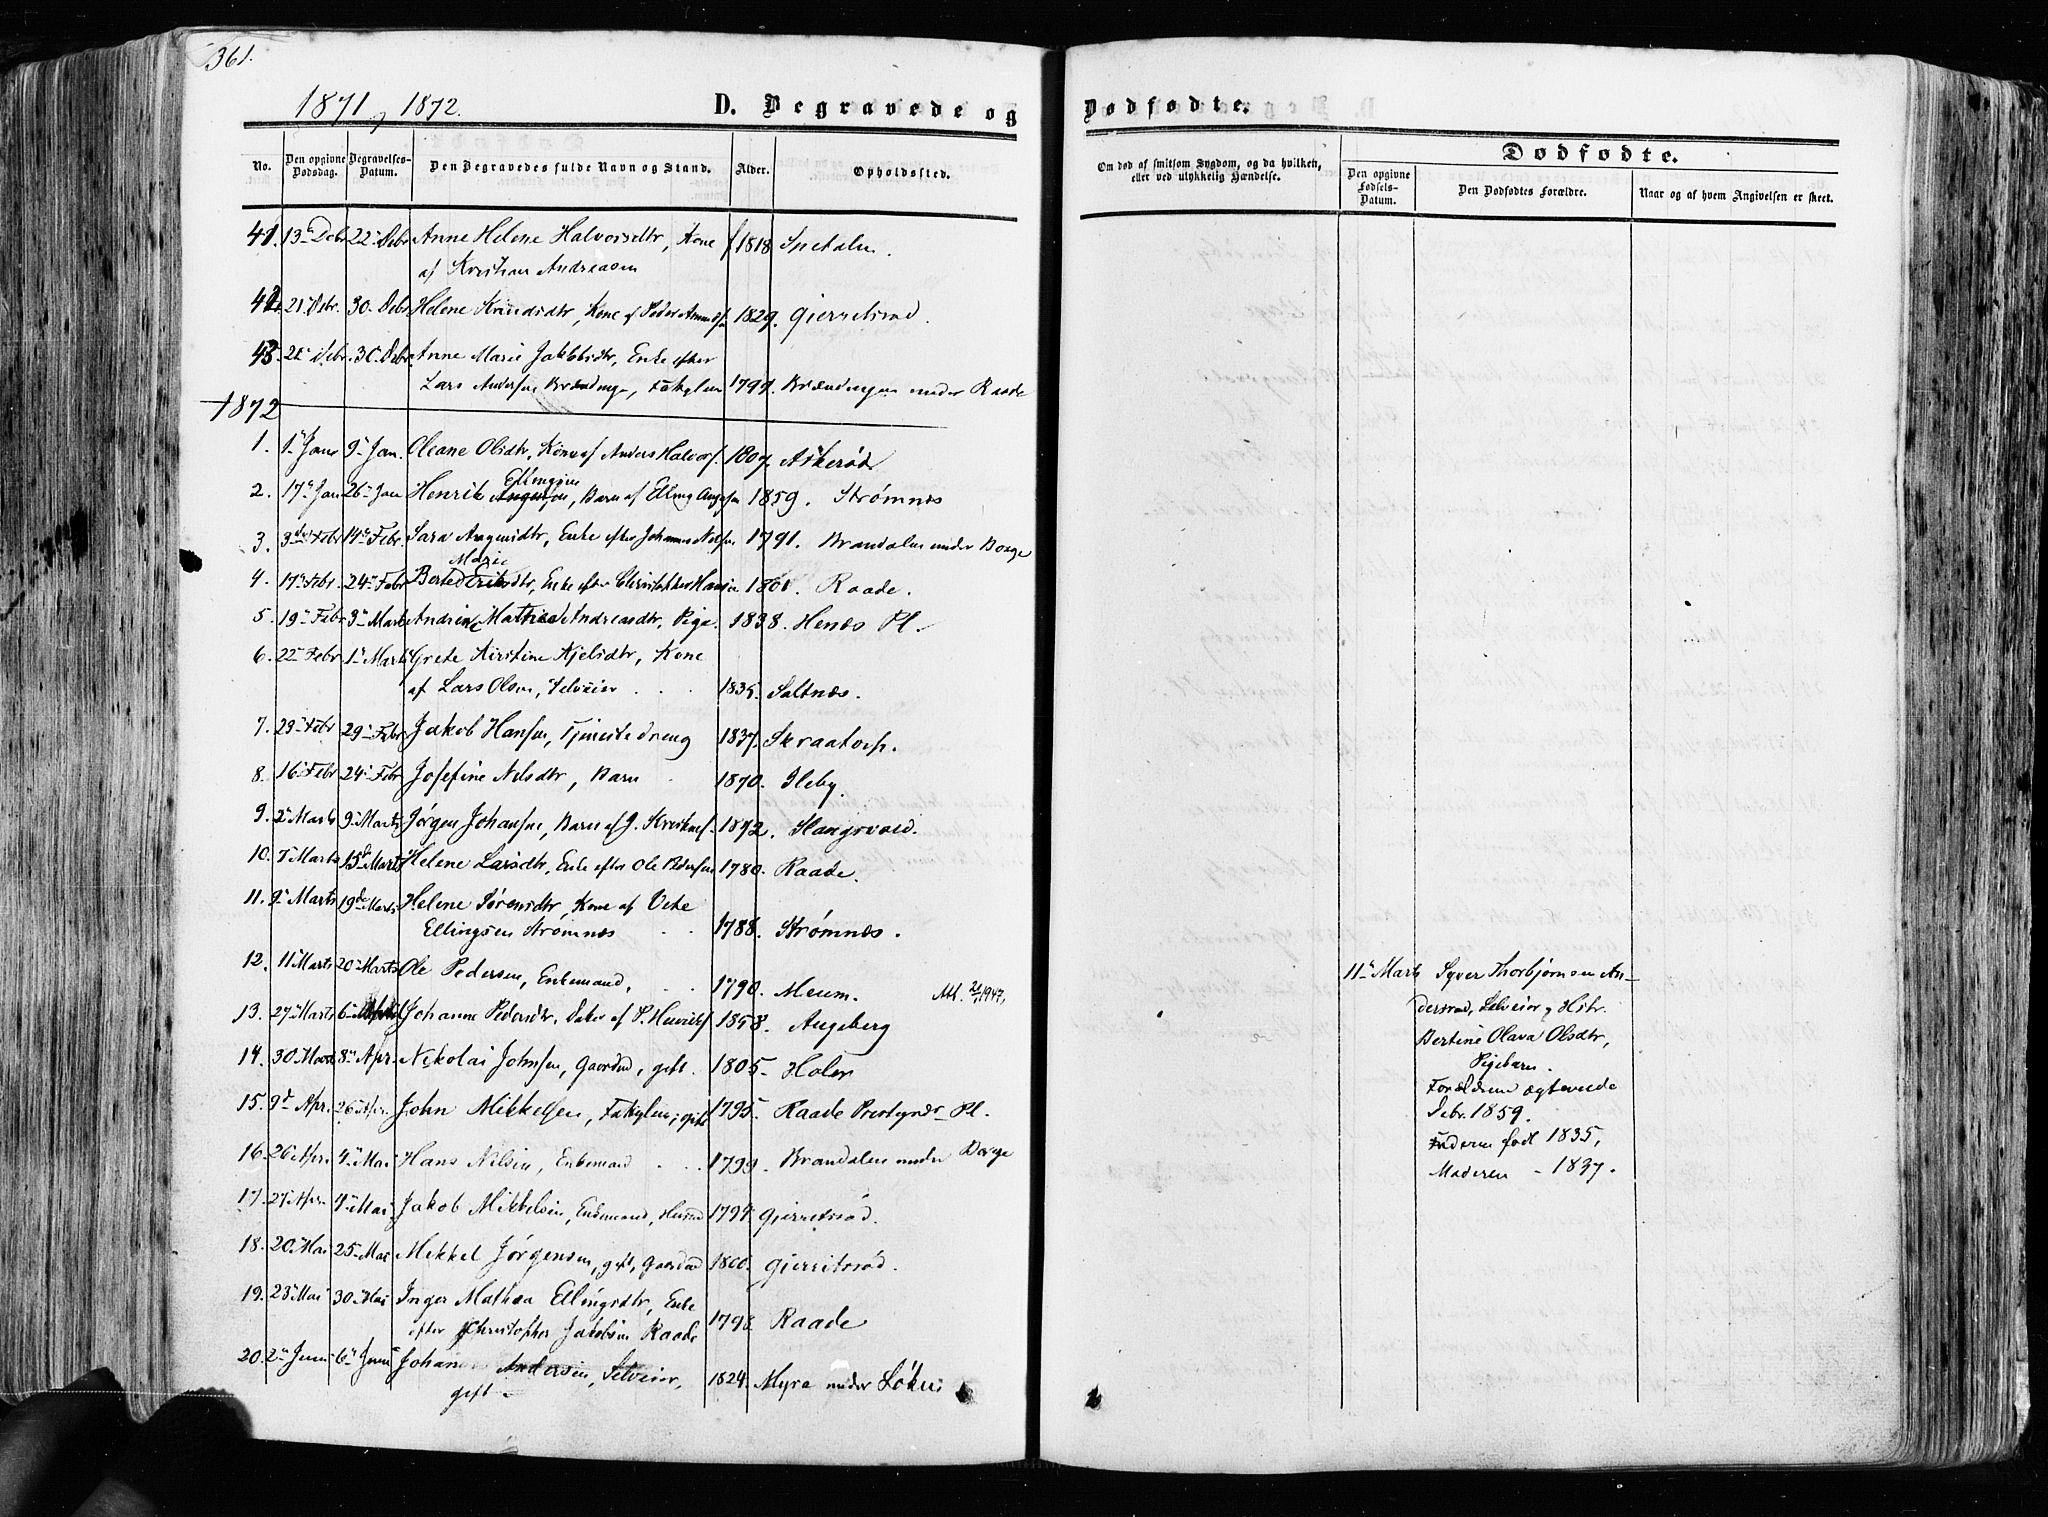 361.
1871 og 1872.
D. Begravede og
No.
Den opgivne Dødsdag.
Begravelses-Datum.
Den Begravedes fulde Navn og Stand.
Alder.
Opholdssted.
41. 13de Debr 22de Debr Anne Helene Halvorsdtr, Kone f 1818 Spetalen.
af Kristian Andreasen
42. 21. Debr. 30. Debr Helene Knudsdtr, Kone af Peder 1829. Gierretsrød.
43. 30. Debr. Anne Marie Jakobsdtr, Enke efter
Lars Andersen Brændinge, Fatylem 1797. Brændingen under Raade
1872
1. 1ste Janr 9de Jan. Oleane Olsdtr, Kone af Anders Halvors. 1807. Askerød
Ellingsen
2. 17de Jan 26de Jan Henrik, Barn af Elling Aagesen 1859. Strømnes
3. 3die Febr 14de Febr. Sara Aagensdtr, Enke efter Johannes Nilsen 1791. Brandalen under Borge
Marie
4. 17de Febr. 24de Febr Eriksdtr, Enke efter Christopher Hansen 1801. Raade.
5. 19de Febr 3die Marts Andrine Mathea Andreasdtr, Pige. 1838. Henes Pl.
6. 22de Febr 1ste Marts Grete Kirstine Kjelsdtr, Kone
af Lars Olsen, Selveier . . 1835. Saltnæs.
7. 29de Febr Jakob Hansen, Tjenestedreng 1837. Skraatorp.
8. 16de Febr 24de Febr Josefine Nilsdtr, Barn . 1870. Ileby.
9. 2den Marts 9de Marts Jørgen Johansen, Barn af J. 1872. Haugsvold.
10. 7de Marts 15de Marts Helene Larsdtr, Enke efter Ole Pedersen 1780. Raade.
11. 9de Marts 19de Marts Helene Sørensdtr, Kone af Vete
Ellingsen Strømnæs . . 1788. Strømnæs.
12. 11 Marts 20de Marts Ole Pedersen, Enkemand. . . 1790. Meum. Att. 2/1 1947.
13. 27de Marts 6te April Johanne Pedersdtr. Datter af P. Henriks. 1858. Augeberg
14. 30 Marts 8de Apr. Nikolai Johnsen, Gaardmd, gift. 1805. Holen
15. 9de Apr. 26 Apr. John Mikkelsen, Fatylem, gift 1795. Raade Prestegrds Pl.
16. 26 Apr. 4de Mai Hans Nilsen, Enkemand . . . 1799. Brandalen under Borge
17. 27de Apr. 4de Mai Jakob Mikkelsen, Enkemand, Husmd 1797. Gjerretsrød.
18. 20. Mai 25de Mai Mikkel Jørgensen, gift, Gaardmd 1800. Gjerritsrød.
19. 23de Mai 30 Mai Inger Mathea Ellingsdtr, Enke
efter Christopher Jakobsen Raade 1798 Raade
20. 2den Juni 6te Juni Johan Andersen, Selveier, 1824. Myra under Løken
gift
Dødfødte.
Om død af smitsom Sygdom, og da hvilken, eller ved ulykkelig Hændelse.
Dødfødte.
Den opgivne Fødsels-Datum.
Den Dødfødtes Forældre.
Naar og af hvem Angivelsen er skeet.
11te Marts Syver Thorbjørnsen An-
dersrød, Selveier og Hstr.
Bertine Olava Olsdtr,
Pigebarn.
Forældrene ægteviede
Debr. 1859.
Faderen født 1835,
Moderen - 1837.